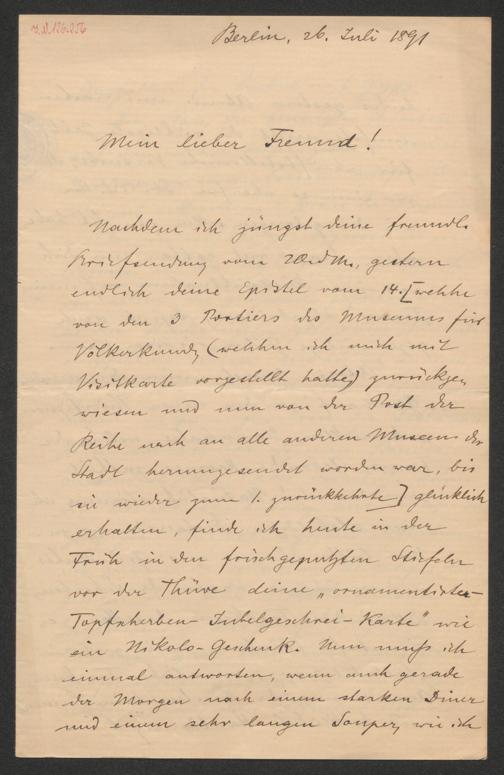 Berlin, 26. Juli 1891
Mein lieber Freund!
Nachdem ich jüngst deine freundl.
Briefsendung vom 20. d. M., gestern
endlich deine Epistel vom 14. [welche
von den 3 Portiers des Museums für
Völkerkunde (welchen ich mich mit
Visitkarte vorgestellt hatte) zurückge-
wiesen und nun von der Post der
Reihe nach an alle anderen Museen der
Stadt herumgesendet worden war, bis
sie wieder zum 1. zurückkehrte] glücklich
erhalten, finde ich heute in der
Früh in den frischgeputzten Stiefeln
vor der Thüre deine „ornamentirte-
Topfscherben-Jubelgeschrei-Karte" wie
ein Nikolo-Geschenk. Nun muß ich
einmal antworten, wenn auch gerade
der Morgen nach einem starken Diner
und einem sehr langen Souper, wie ich